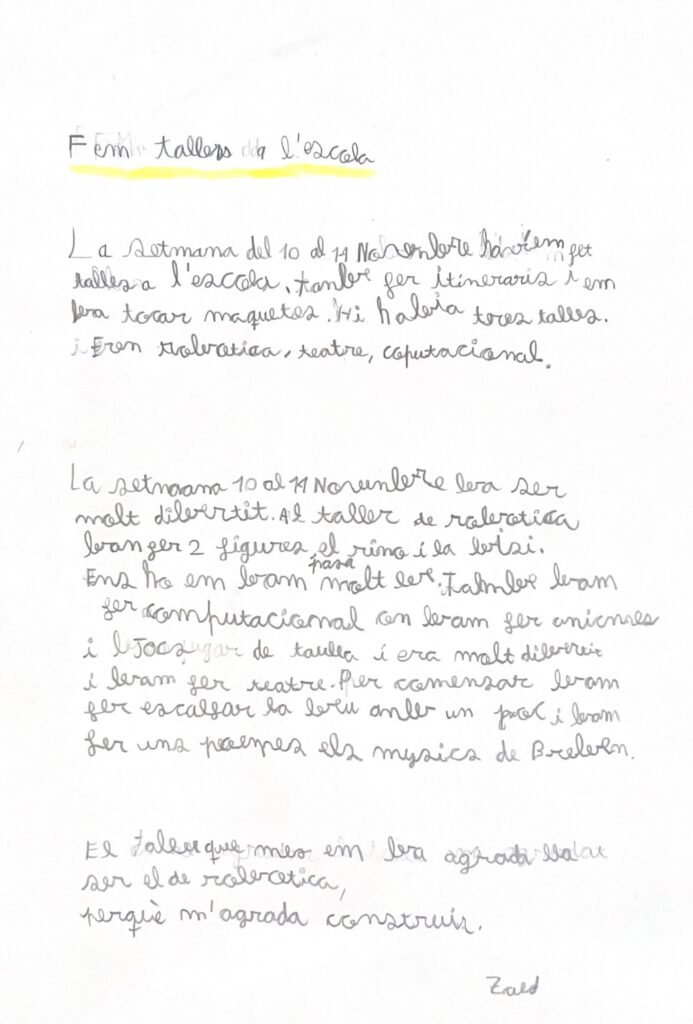 Fem tallers a l'escola
La setmana del 10 al 14 Novembre hem fet
talles a l'escola, tambe fer itineraris i em
va tocar maquetes. Hi havia tres talles.
i Eren robotica, teatre, coputacional.
La setmana 10 al 14 Novembre va ser
molt divertit. Al taller de robotica
van fer 2 figures, el rino i la
Ens ho em vam pasa molt be. Tambe vam
fer computacional on vam fer
i Jocs de taula i era molt divertit
i vam fer teatre. Per comensar vam
fer escalfar la veu amb un poc i vam
fer uns poemes els mysics de Breven.
El taller que mes em va agrada
ser el de robotica,
perquè m'agrada construir.
Zaed